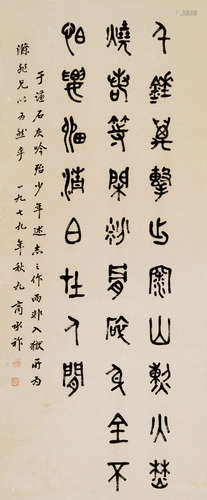 千錘萬擊出深山烈火焚
燒若等閑粉身碎骨全不
怕要留清白在人間
于謙石灰吟殆少年述志之作而非入獄所為
滌非兄以為然乎 一九七九年秋九商承祚